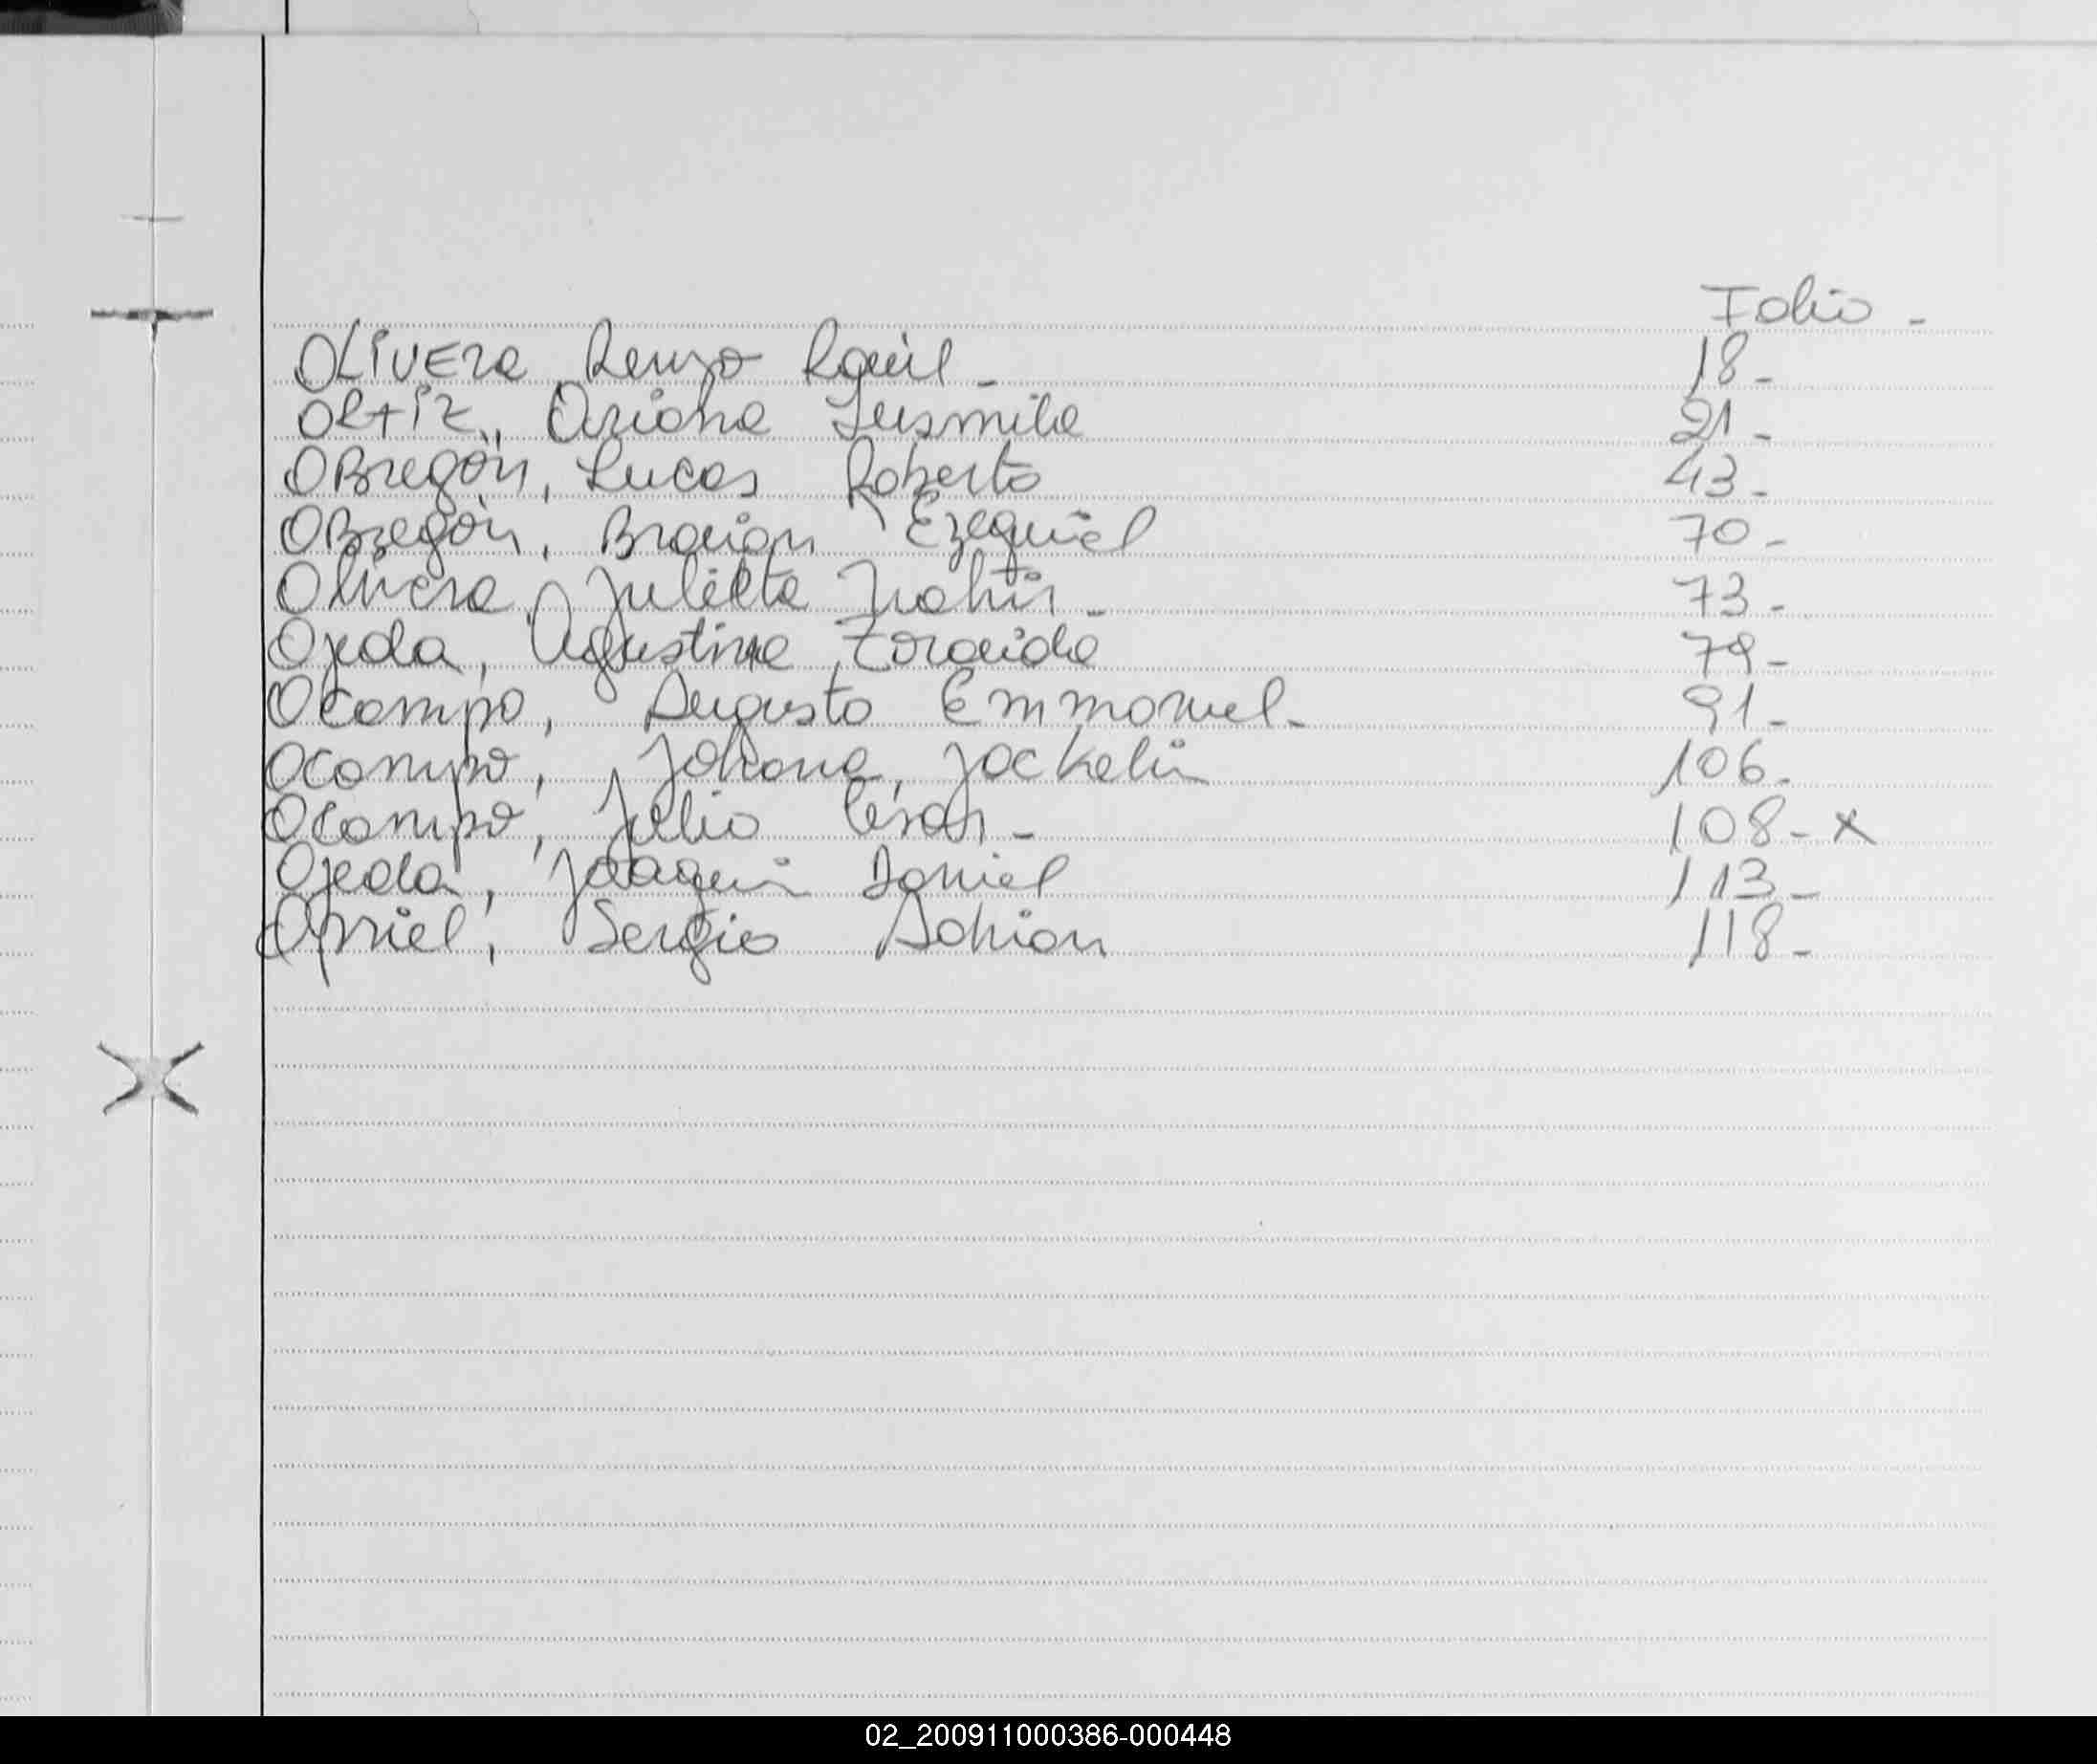 Folio -
OLIVERA, Renzo Raúl - 18 -
ORTIZ, Oriana Lusmila 21 -
OBregón, Lucas Roberto 43 -
OBregón, Braian Ezequiel 70 -
Olivera, Julieta 73 -
Ojeda, Agustina Zoraida 79 -
Ocampo, Augusto Emmanuel - 91 -
Ocampo, Johana, Jackelin 106 -
Ocampo, Julio César - 108 - x
Ojeda, Joaquin Daniel 113 -
Sergio Adrian 118 -
02_200911000386-000448